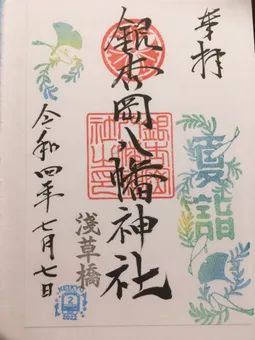 奉拝
夏詣
銀杏岡八幡神社
浅草橋
令和四年七月七日
2
2022